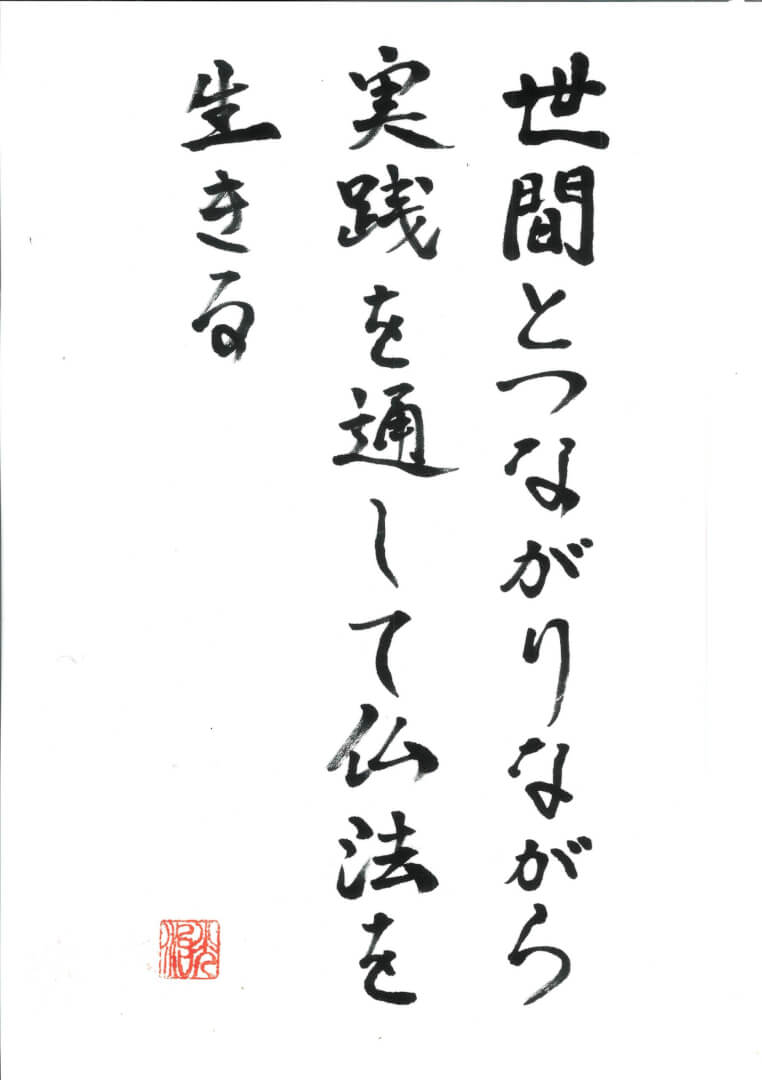 世間とつながりながら
実践を通して仏法を
生きる